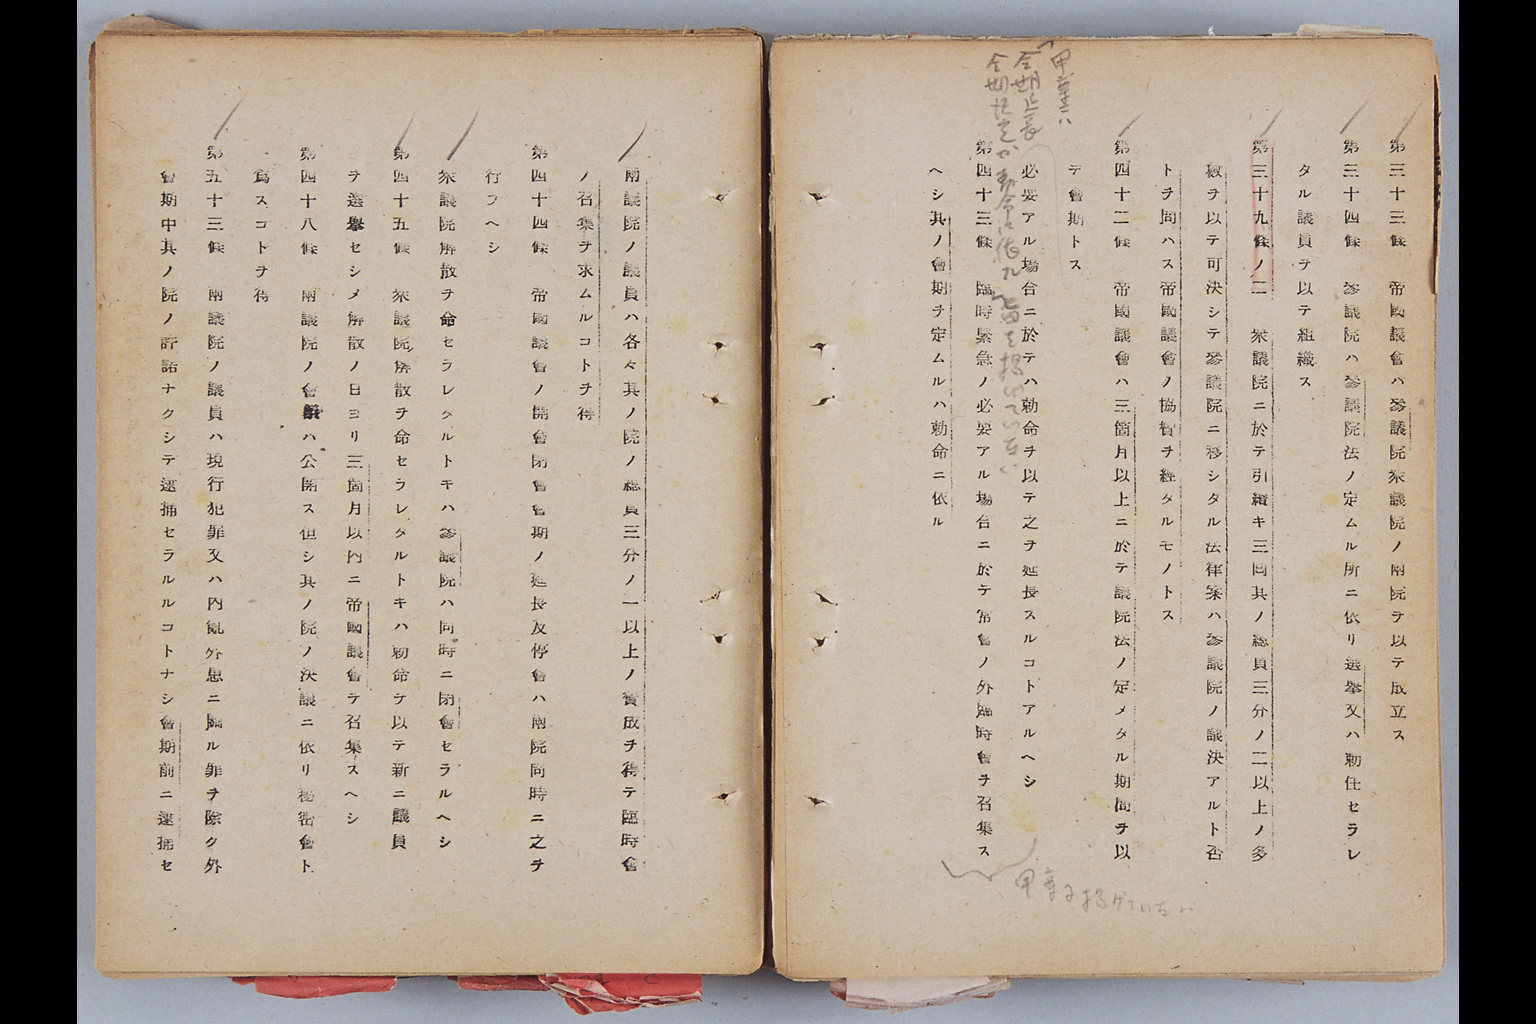 第三十三條　帝國議會ハ參議院衆議院ノ兩院ヲ以テ成立ス
第三十四條　參議院ハ參議院法ノ定ムル所ニ依リ選擧又ハ勅任セラレ
タル議員ヲ以テ組織ス
第三十九條ノ二　衆議院ニ於テ引續キ三囘其ノ總員三分ノ二以上ノ多
數ヲ以テ可決シテ參議院ニ移シタル法律案ハ參議院ノ議決アルト否
トヲ問ハス帝國議會ノ協贊ヲ經タルモノトス
第四十二條　帝國議會ハ三箇月以上ニ於テ議院法ノ定メタル期間ヲ以
テ會期トス
甲案ニハ
会期延長
必要アル場合ニ於テハ勅命ヲ以テ之ヲ延長スルコトアルヘシ
第四十三條　臨時緊急ノ必要アル場合ニ於テ常會ノ外臨時會ヲ召集ス
ヘシ其ノ會期ヲ定ムルハ勅命ニ依ル
甲案ニ掲げていない
兩議院ノ議員ハ各々其ノ院ノ總員三分ノ一以上ノ贊成ヲ得テ臨時會
ノ召集ヲ求ムルコトヲ得
第四十四條　帝國議會ノ開會閉會會期ノ延長及停會ハ兩院同時ニ之ヲ
行フヘシ
衆議院解散ヲ命セラレタルトキハ參議院ハ同時ニ閉會セラルヘシ
第四十五條　衆議院解散ヲ命セラレタルトキハ勅命ヲ以テ新ニ議員
ヲ選擧セシメ解散ノ日ヨリ三箇月以内ニ帝國議會ヲ召集スヘシ
第四十八條　兩議院ノ會議ハ公開ス但シ其ノ院ノ決議ニ依リ祕密會ト
爲スコトヲ得
第五十三條　兩議院ノ議員ハ現行犯罪又ハ内亂外患ニ關ル罪ヲ除ク外
會期中其ノ院ノ許諾ナクシテ逮捕セラルルコトナシ會期前ニ逮捕セ